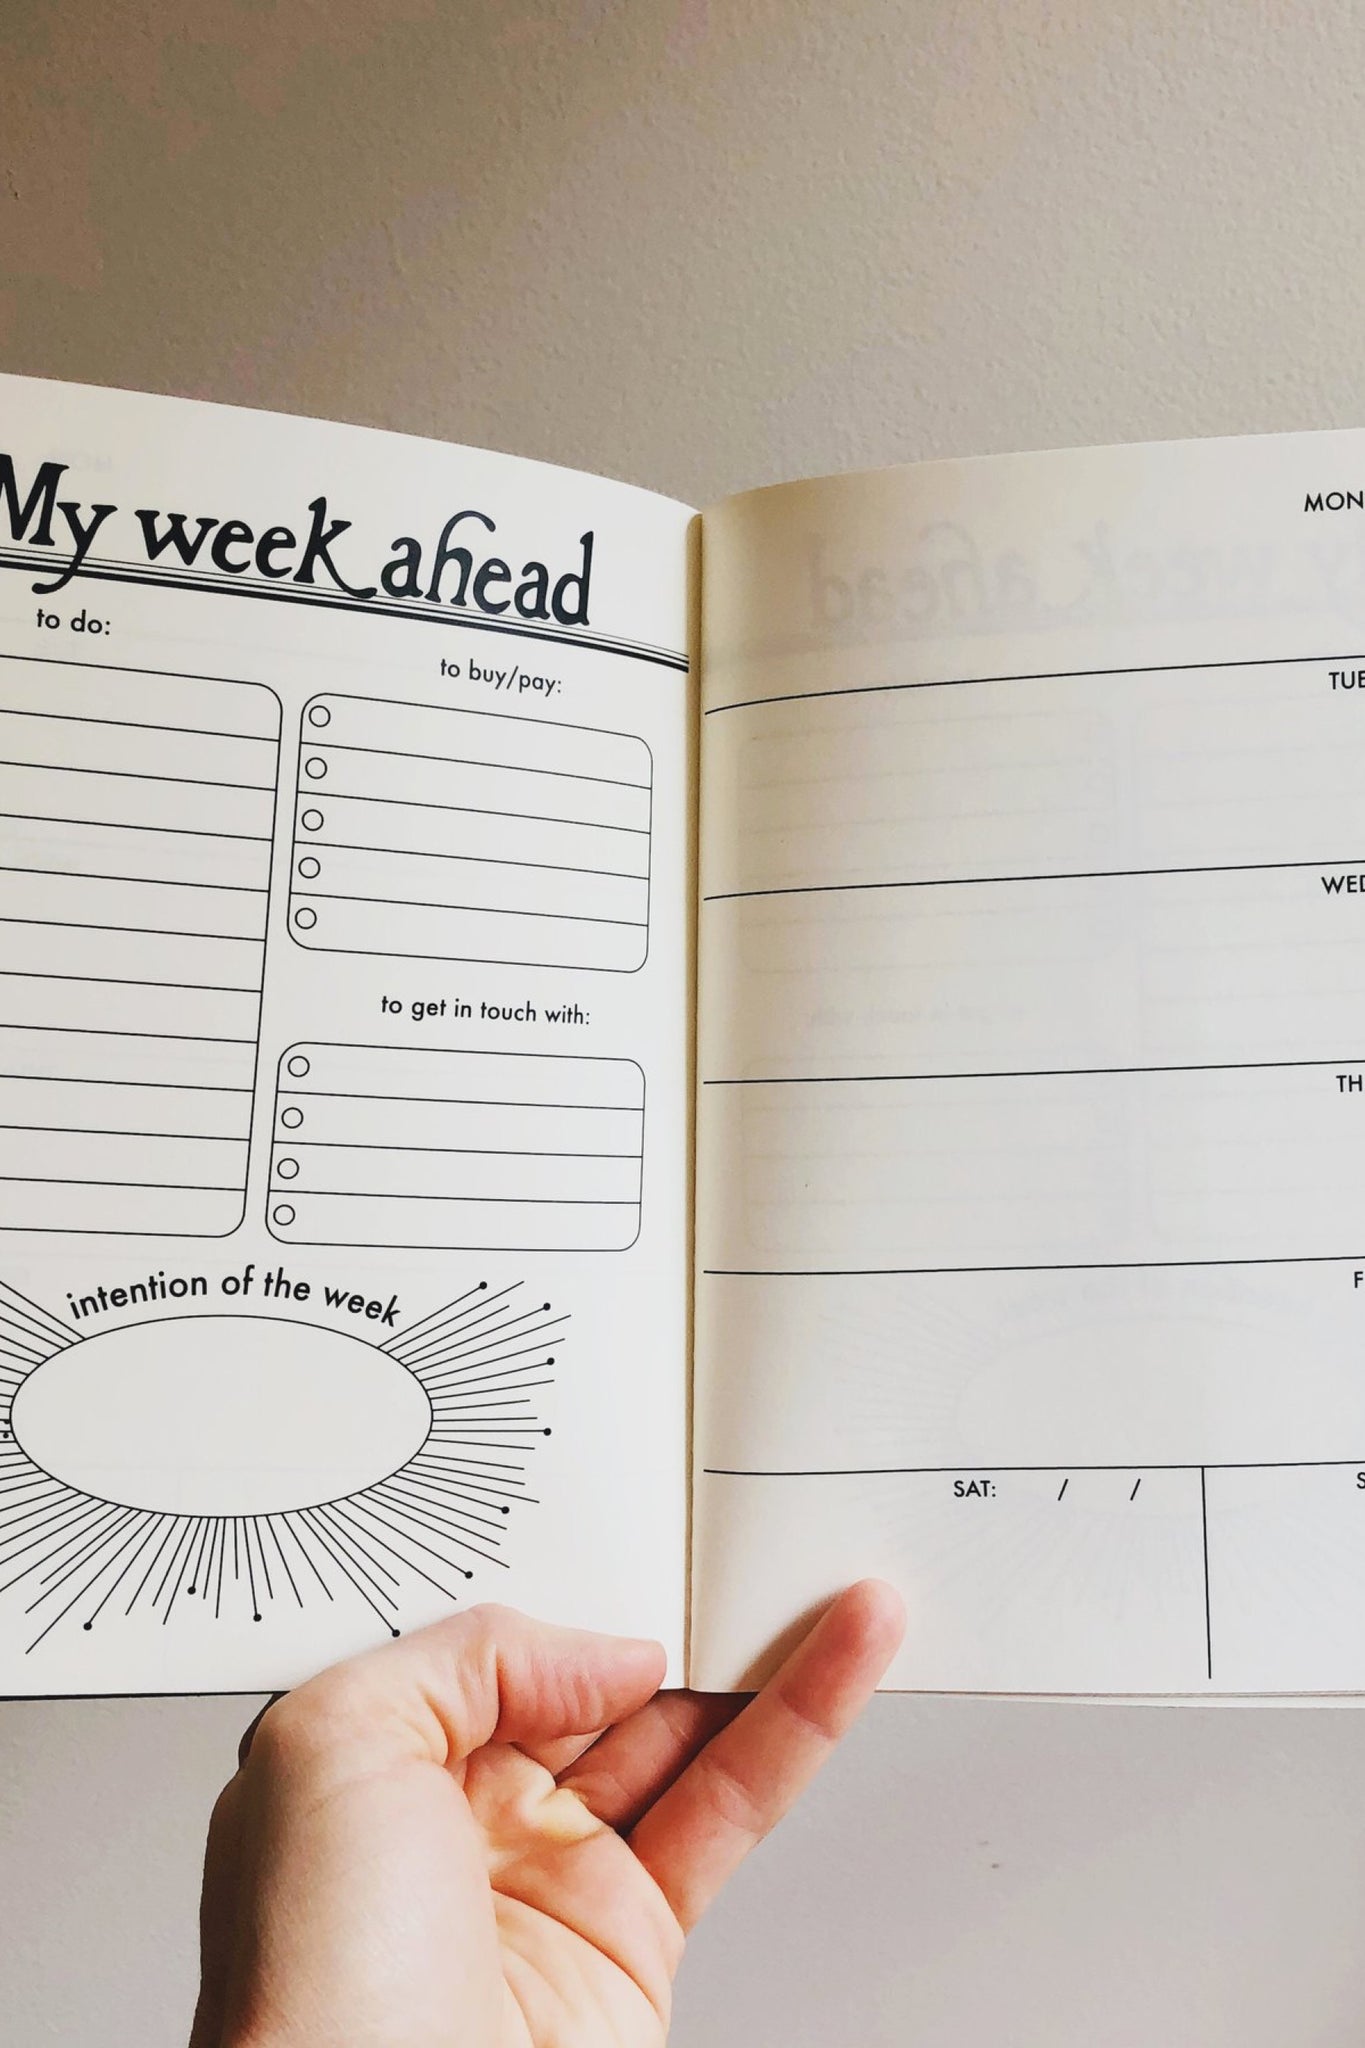 My week ahead
to do:
to buy/pay:
to get in touch with:
intention of the week
MON
TUE
WED
TH
F
SAT: / /
S